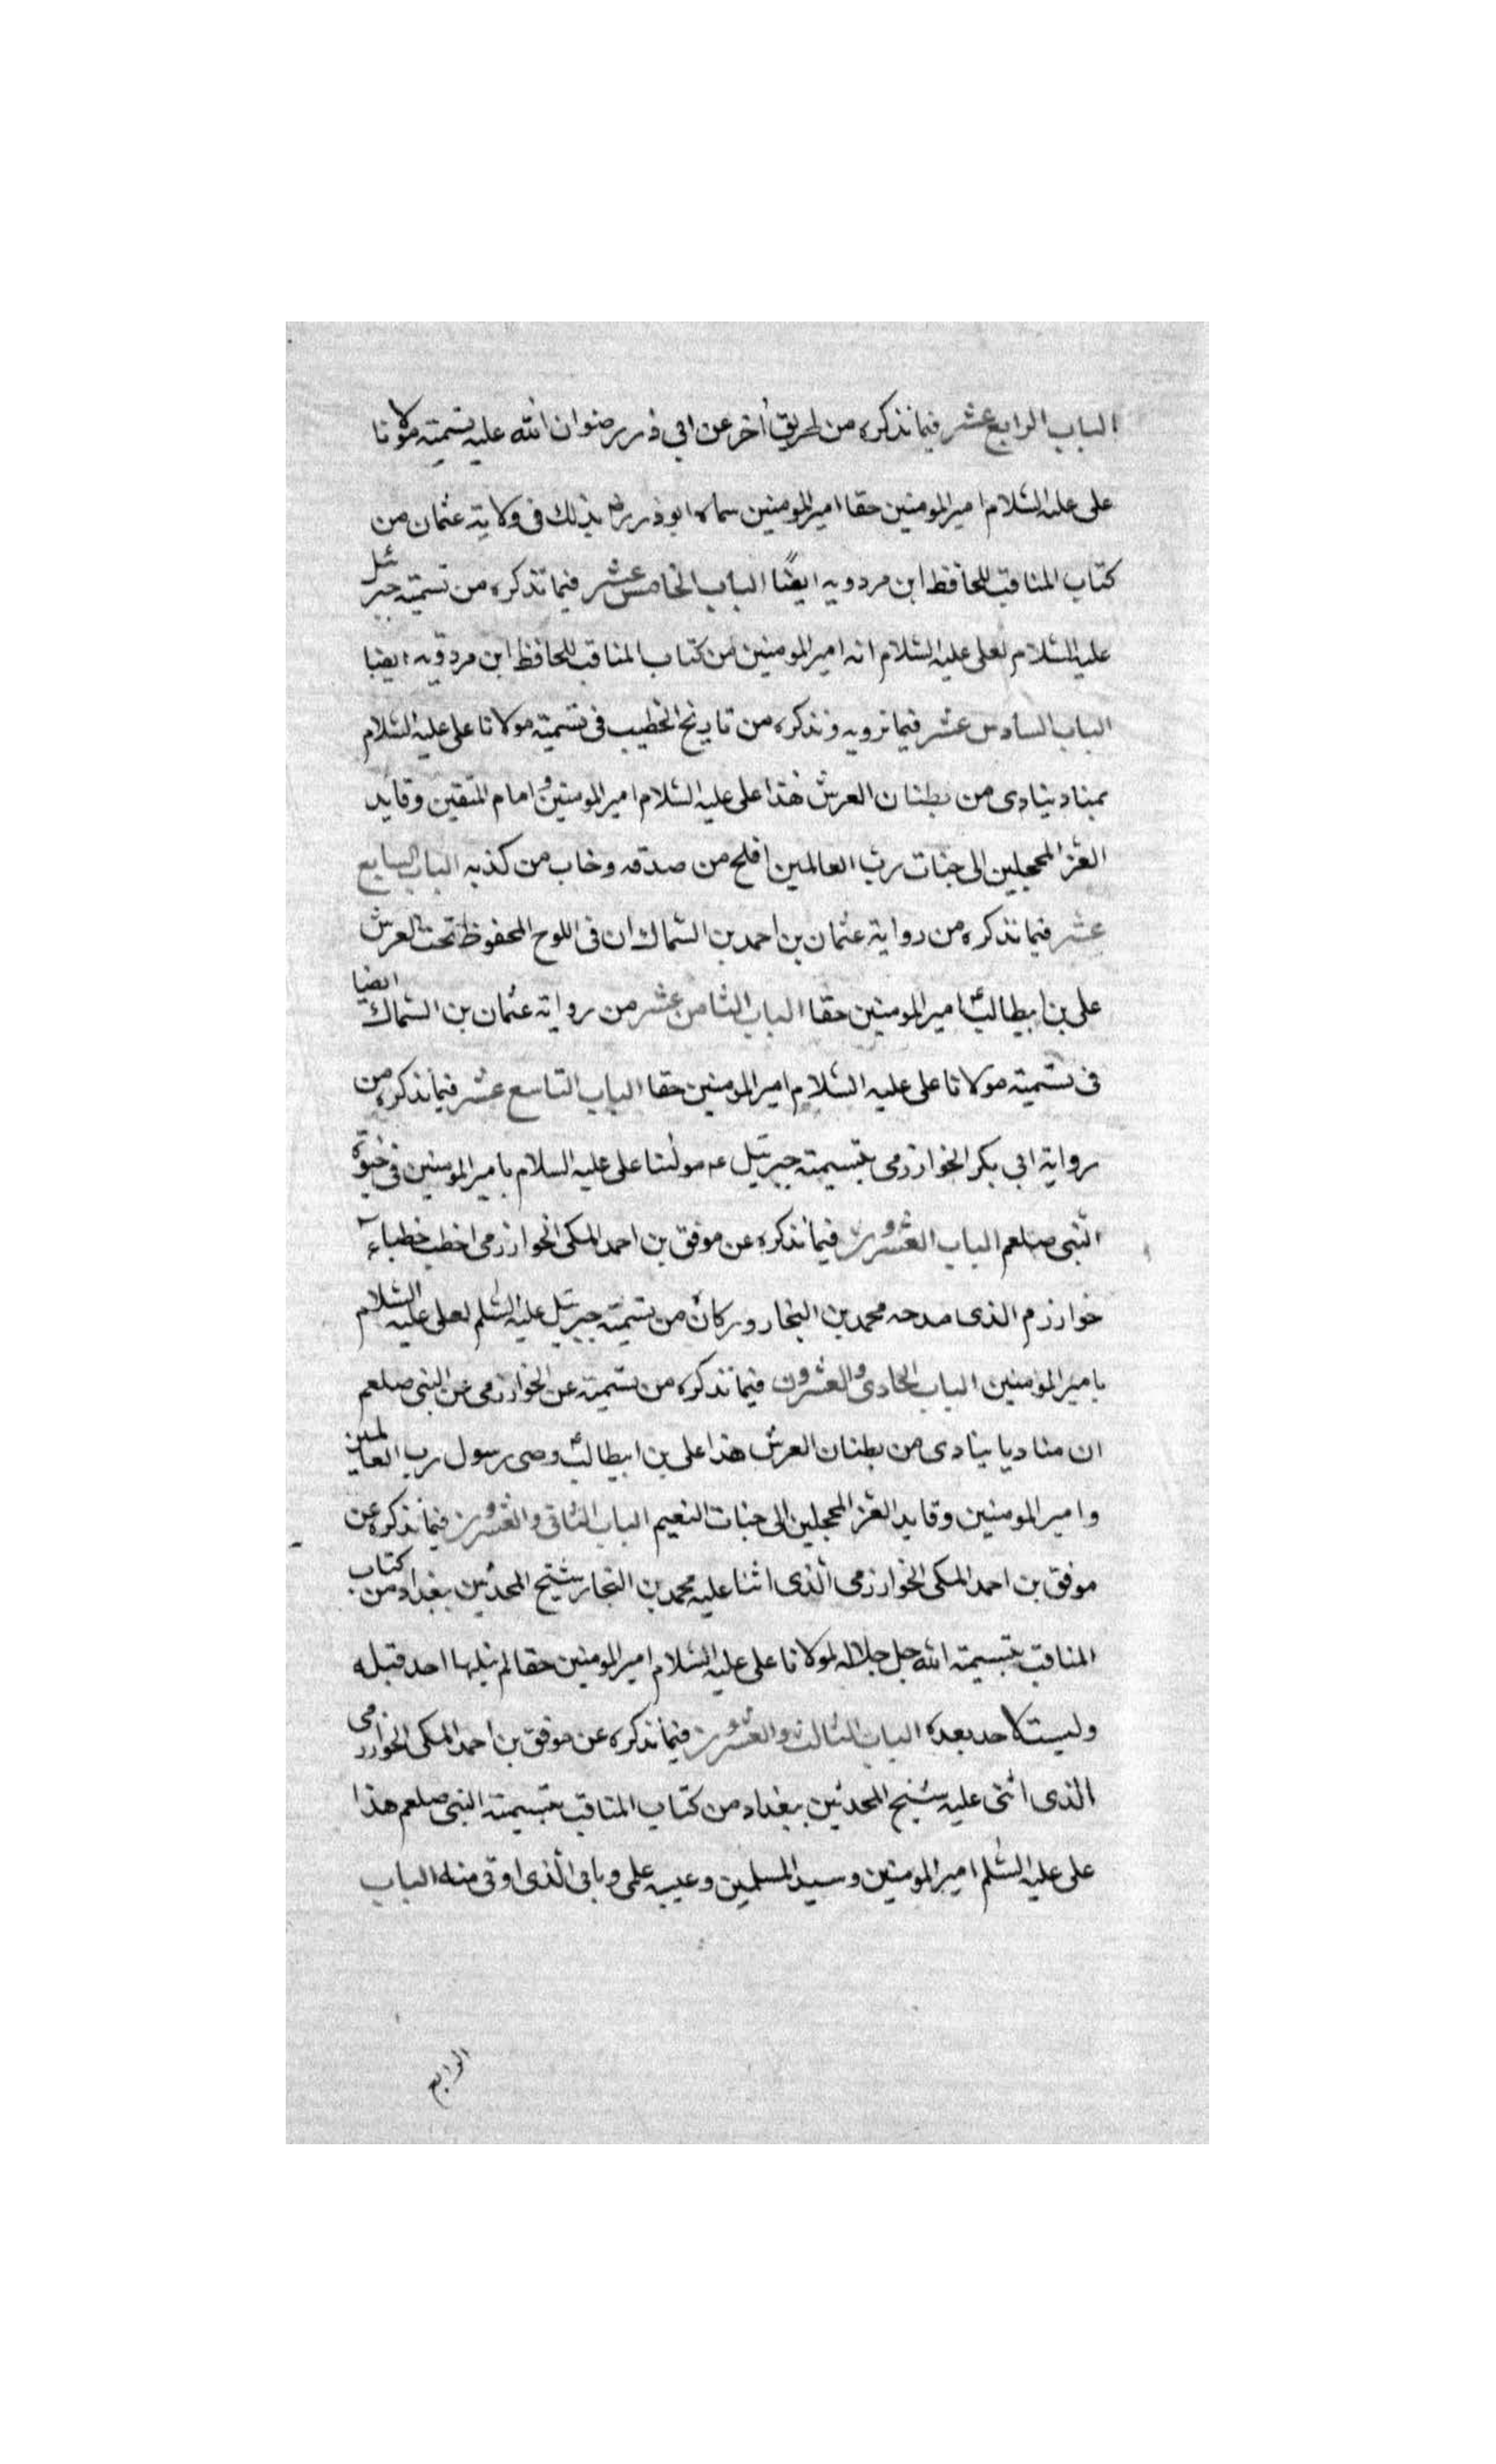 الباب الرابع عشر فيما نذكره من طريق أخر عن ابي ذر رضوان الله عليه تسميته مولانا
على عليه السلام امير المومنين حقا امير المومنين سماه ابو ذر رض بذلك فى ولاية عثمان من
كتاب المناقب للحافظ ابن مردويه ايضًا الباب الخامس عشر فيما نذكره من تسمية جبرئل
عليه السلام لعلى عليه السلام انه امير المومنين من كتاب المناقب للحافظ ابن مردويه ايضا
الباب السادس عشر فيما نرويه ونذكره من تاريخ الخطيب فى تسمية مولانا على عليه السلام
بمناد ينادى من بطنان العرش هذا على عليه السلام امير المومنين و امام المتقين وقايد
الغر المحجلين الى جنات رب العالمين افلح من صدقه وخاب من كذبه الباب السابع
عشر فيما نذكره من رواية عثمان بن احمد بن السماك ان فى اللوح المحفوظ تحت العرش
على بن ابيطالب امير المومنين حقا الباب الثامن عشر من رواية عثمان بن السماك ايضا
فى تسمية مولانا على عليه السلام امير المومنين حقا الباب التاسع عشر فيما نذكره من
رواية ابي بكر الخوارزمى بتسيمته جبرئيل عه مولنا على عليه السلام بامير المومنين فى حيوة
النبى صلعم الباب العشرون فيما نذكره عن موفق بن احمد المكى الخوارزمى اخطب خطباء
خوارزم الذى مدحه محمد بن النجار وزكاه من تسمية جبرئيل عليه السلم لعلى عليه السلام
بامير المومنين الباب الحادى والعشرون فيما نذكره من تسميته عن الخوارزمى عن النبى صلعم
ان مناديا ينادى من بطنان العرش هذا على بن ابيطالب وصى رسول رب العالمين
وامير المومنين وقايد الغر المحجلين الى جنات النعيم الباب الثانى والعشرون فيما نذكره عن
موفق بن احمد المكى الخوارزمى الذى اثنا عليه محمد بن النجار شيخ المحدثين ببغداد من كتاب
المناقب بتسيمته الله جل جلاله لمولانا على عليه السلام امير المومنين حقا لم ينلها احد قبله
وليست لاحد بعده الباب الثالث والعشرون فيما نذكره عن موفق بن احمد المكى الخوارزمى
الذى أثنى عليه شيخ المحدثين ببغداد من كتاب المناقب بتسيمته النبى صلعم هذا
على عليه السلم امير المومنين وسيد المسلمين وعيبه علمى وبابى الذى اوتى منه الباب
الرابع